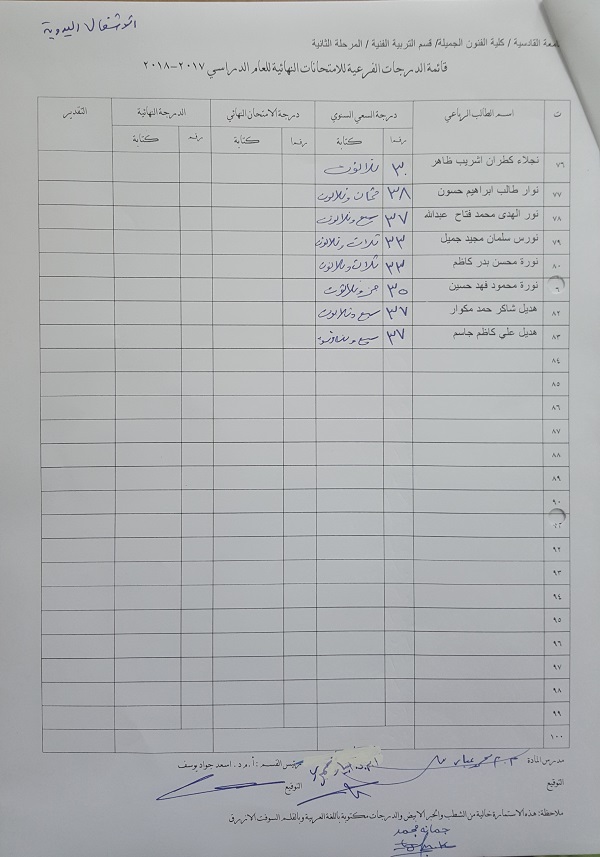 الاشغال اليدوية
جامعة القادسية / كلية الفنون الجميلة/ قسم التربية الفنية / المرحلة الثانية
قائمة الدرجات الفرعية للامتحانات النهائية للعام الدراسي ٢٠١٧-٢٠١٨
ت اسم الطالب الرباعي درجة السعي السنوي درجة الامتحان النهائي الدرجة النهائية التقدير
رقما كتابة رقما كتابة رقما كتابة
٧٦ نجلاء كطران اشريب ظاهر ٣٠ ثلاثون
٧٧ نوار طالب ابراهيم حسون ٣٨ ثمان وثلاثون
٧٨ نور الهدى محمد فتاح عبدالله ٣٧ سبع وثلاثون
٧٩ نورس سلمان مجيد جميل ٣٣ ثلاث وثلاثون
٨٠ نورة محسن بدر كاظم ٣٣ ثلاث وثلاثون
نورة محمود فهد حسين ٣٥ خمس وثلاثون
٨٢ هديل شاكر حمد مكوار ٣٧ سبع وثلاثون
٨٣ هديل علي كاظم جاسم ٣٧ سبع وثلاثون
٨٤
٨٥
٨٦
٨٧
٨٨
٨٩
٩٠
٩٢
٩٣
٩٤
٩٥
٩٦
٩٧
٩٨
٩٩
١٠٠
مدرس المادة رئيس القسم : أ.م.د. اسعد جواد يوسف
التوقيع التوقيع
ملاحظة: هذه الاستمارة خالية من الشطب والحبر الابيض والدرجات مكتوبة باللغة العربية وبالقلم السوفت الازرق
جمانه محمد